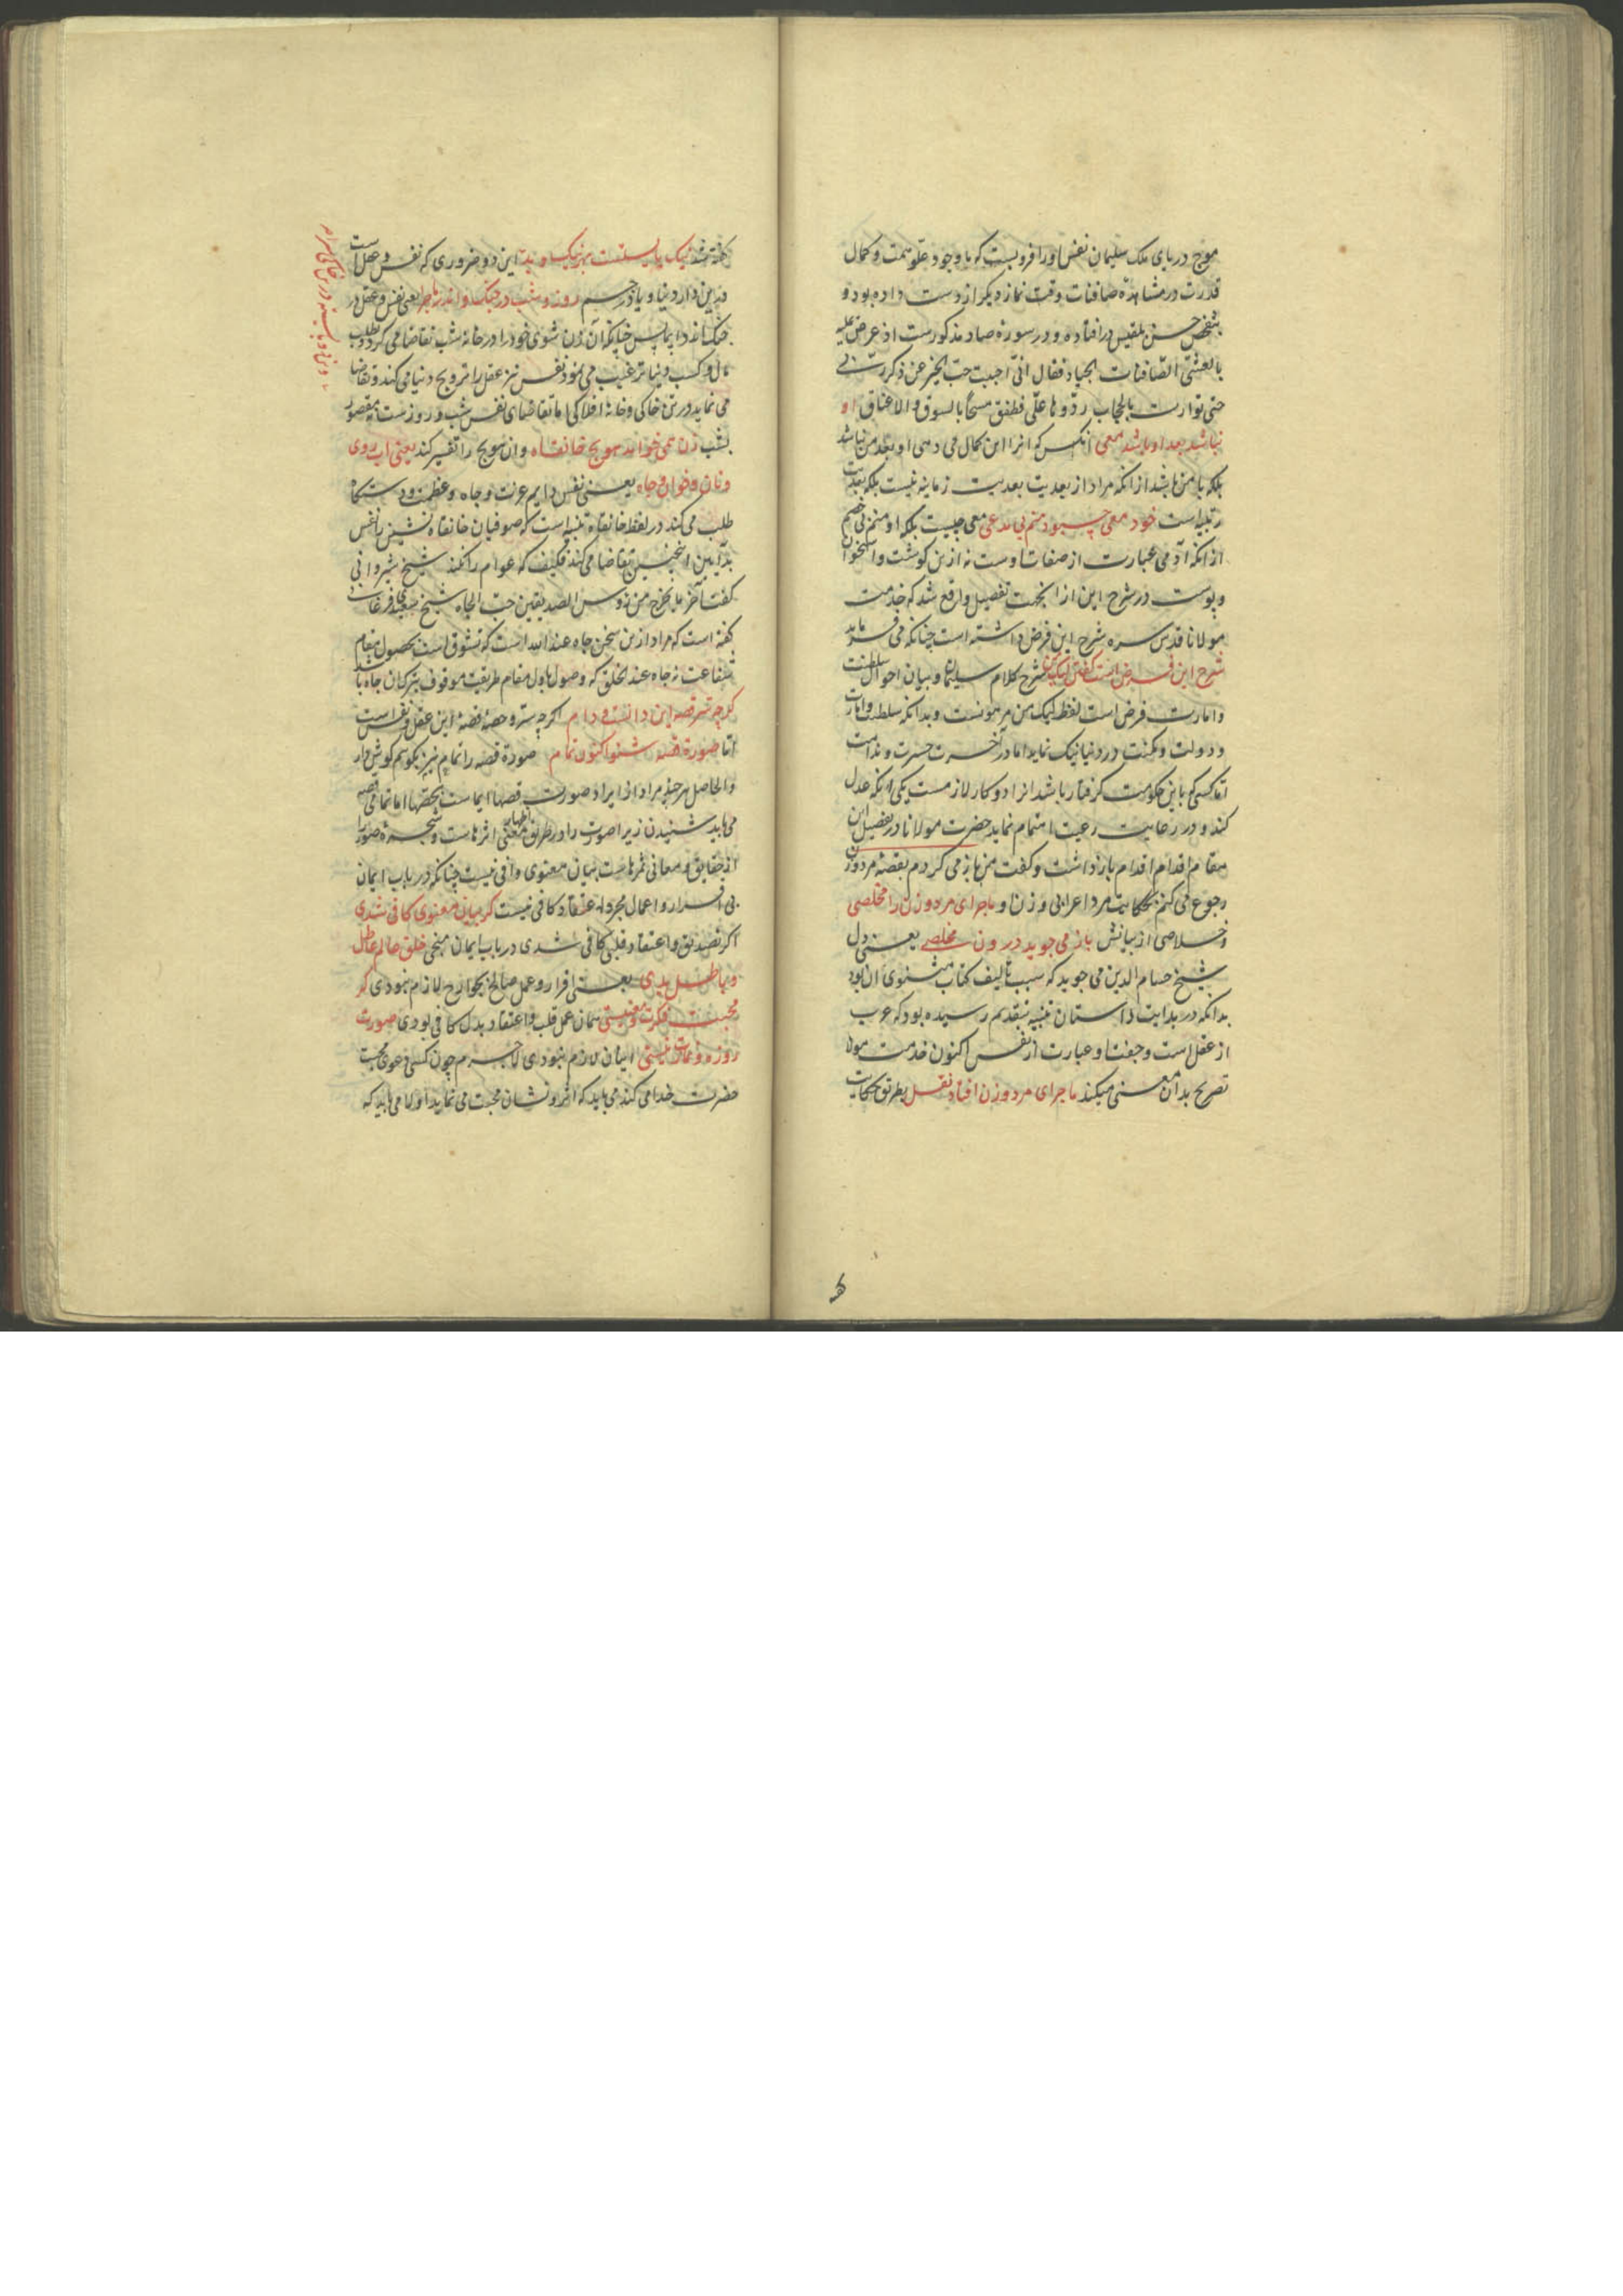 موج دریای ملک سلیمان نفس اورا فروبست که باوجود علو همت و کمال
قدرت در مشاهدۀ صافنات وقت نماز دیگر از دست داده بود و
حسن بلقیس درافتاده و در سورۀ صاد مذکورست اذ عرض علیه
بالعشی الصافنات الجیاد فقال انی احببت حب الخیر عن ذکر ربی
حتی توارت بالحجاب ردوها علی فطفق مسحا بالسوق والاعناق او
نباشد بعد او باشد معی آنکس که او را این کمال می دهی او بعد من نباشد
بلکه با من باشد از آنکه مراد از بعدیت بعدیت زمانیه نیست بلکه بعدیت
رتبیه است خود معی چبود منم بی مدعی معی چیست بلکه او منم بی خصم
از آنکه آدمی عبارت از صفات اوست نه از این گوشت و استخوان
و پوست در شرح این از آن جهت تفصیل واقع شد که خدمت
مولانا قدس سره شرح این فرض داشته است چنانکه می فرماید
شرح این فرض است گفتن لیک من شرح کلام سلیمان و بیان احوال سلطنت
و امارت فرض است لفظ لیک من مرهونست و بدانکه سلطنت و امارت
و دولت و مکنت در دنیا نیک نماید اما در آخرت حسرت و ندامت
اما کسی که باین حکومت گرفتار باشد او را دو کار لازمست یکی آنکه عدل
کند و در رعایت رعیت اهتمام نماید حضرت مولانا در تفصیل این
مقام اقدام اقدام بازداشت و گفت من باز می گردم بقصۀ مرد و زن
رجوع می کنم بحکایت مرد اعرابی و زن او ماجرای مرد و زن را مخلصی
و خلاصی از بیانش باز می جوید درون مخلصی یعنی دل
شیخ حسام الدین می جوید که سبب تالیف کتاب مثنوی آن بود
بدانکه در بدایت داستان تنبیه تقدیم رسیده بود که عرب
از عقل است و جفت او عبارت از نفس اکنون خدمت مولانا
تصریح بدان معنی میکند ماجرای مرد و زن افتاد نقل بطریق حکایت
نیک بایستست بهر نیک و بد این دو ضروری که نفس و عقل است
درین دار دنیا و یا در جسم روز و شب در جنگ و اندر ماجرا یعنی نفس و عقل در
جنک اند دایما پس چنانکه آن زن شوی خود را در خانه شب تقاضا می کرد و بطلب
مال و کسب دنیا ترغیب می نمود نفس نیز عقل را ترویج دنیا می کند و تقاضا
می نماید در تن خاکی و خانۀ افلاکی اما تقاضای نفس شب و روزست مقصور
بشب زن همی خواهد حویج خانقاه و آن حویج را تفسیر کند یعنی آب روی
و نان و خوان و جاه یعنی نفس دایم عزت و جاه و عظمت و دستگاه
طلب می کند در لفظ خانقاه تنبیه است که صوفیان خانقاه نشین را نفس
بدایین اینچنین تقاضا می کند فکیف که عوام را نکند شیخ شیروانی
گفت آخر ما یخرج من رؤس الصدیقین حب الجاه شیخ
گفته است که مراد از این سخن جاه عند الله است که تشوق است بحصول مقام
شفاعت نه جاه عند الخلق که وصول باول مقام طریقت موقوف بترک آن جاه باشد
گرچه سر قصه این دانه و دام اگر چه سر و حصۀ قصه این عقل و نفس است
اما صورة قصه شنو اکنون تمام صورة قصه را تمام نیز بگویم گوش دار
و الحاصل هر چند مراد از ایراد صورت قصها ایماست بحصتها اما تمامی قصه
می باید شنیدن زیرا صورت را در طریق اظهار معنی اثرهاست و شجرۀ صور را
از حقایق و معانی ثمرهاست بیان معنوی وافی نیست چنانکه در باب ایمان
بی اقرار و اعمال مجرد اعتقاد کافی نیست گر بیان معنوی کافی شدی
اگر تصدیق و اعتقاد قلبی کافی شدی در باب ایمان منجی خلق عالم عاطل
و باطل بدی یعنی اقرار و عمل صالح بجوارح لازم نبودی گر
محبت فکرت و معنیستی همان عمل قلب و اعتقاد بدل کافی بودی صورت
روزه و نمازت نیستی اتیان لازم نبودی لاجرم چون کسی دعوی محبت
حضرت خدا می کند می باید که اثر و نشان محبت می نماید او را می باید که